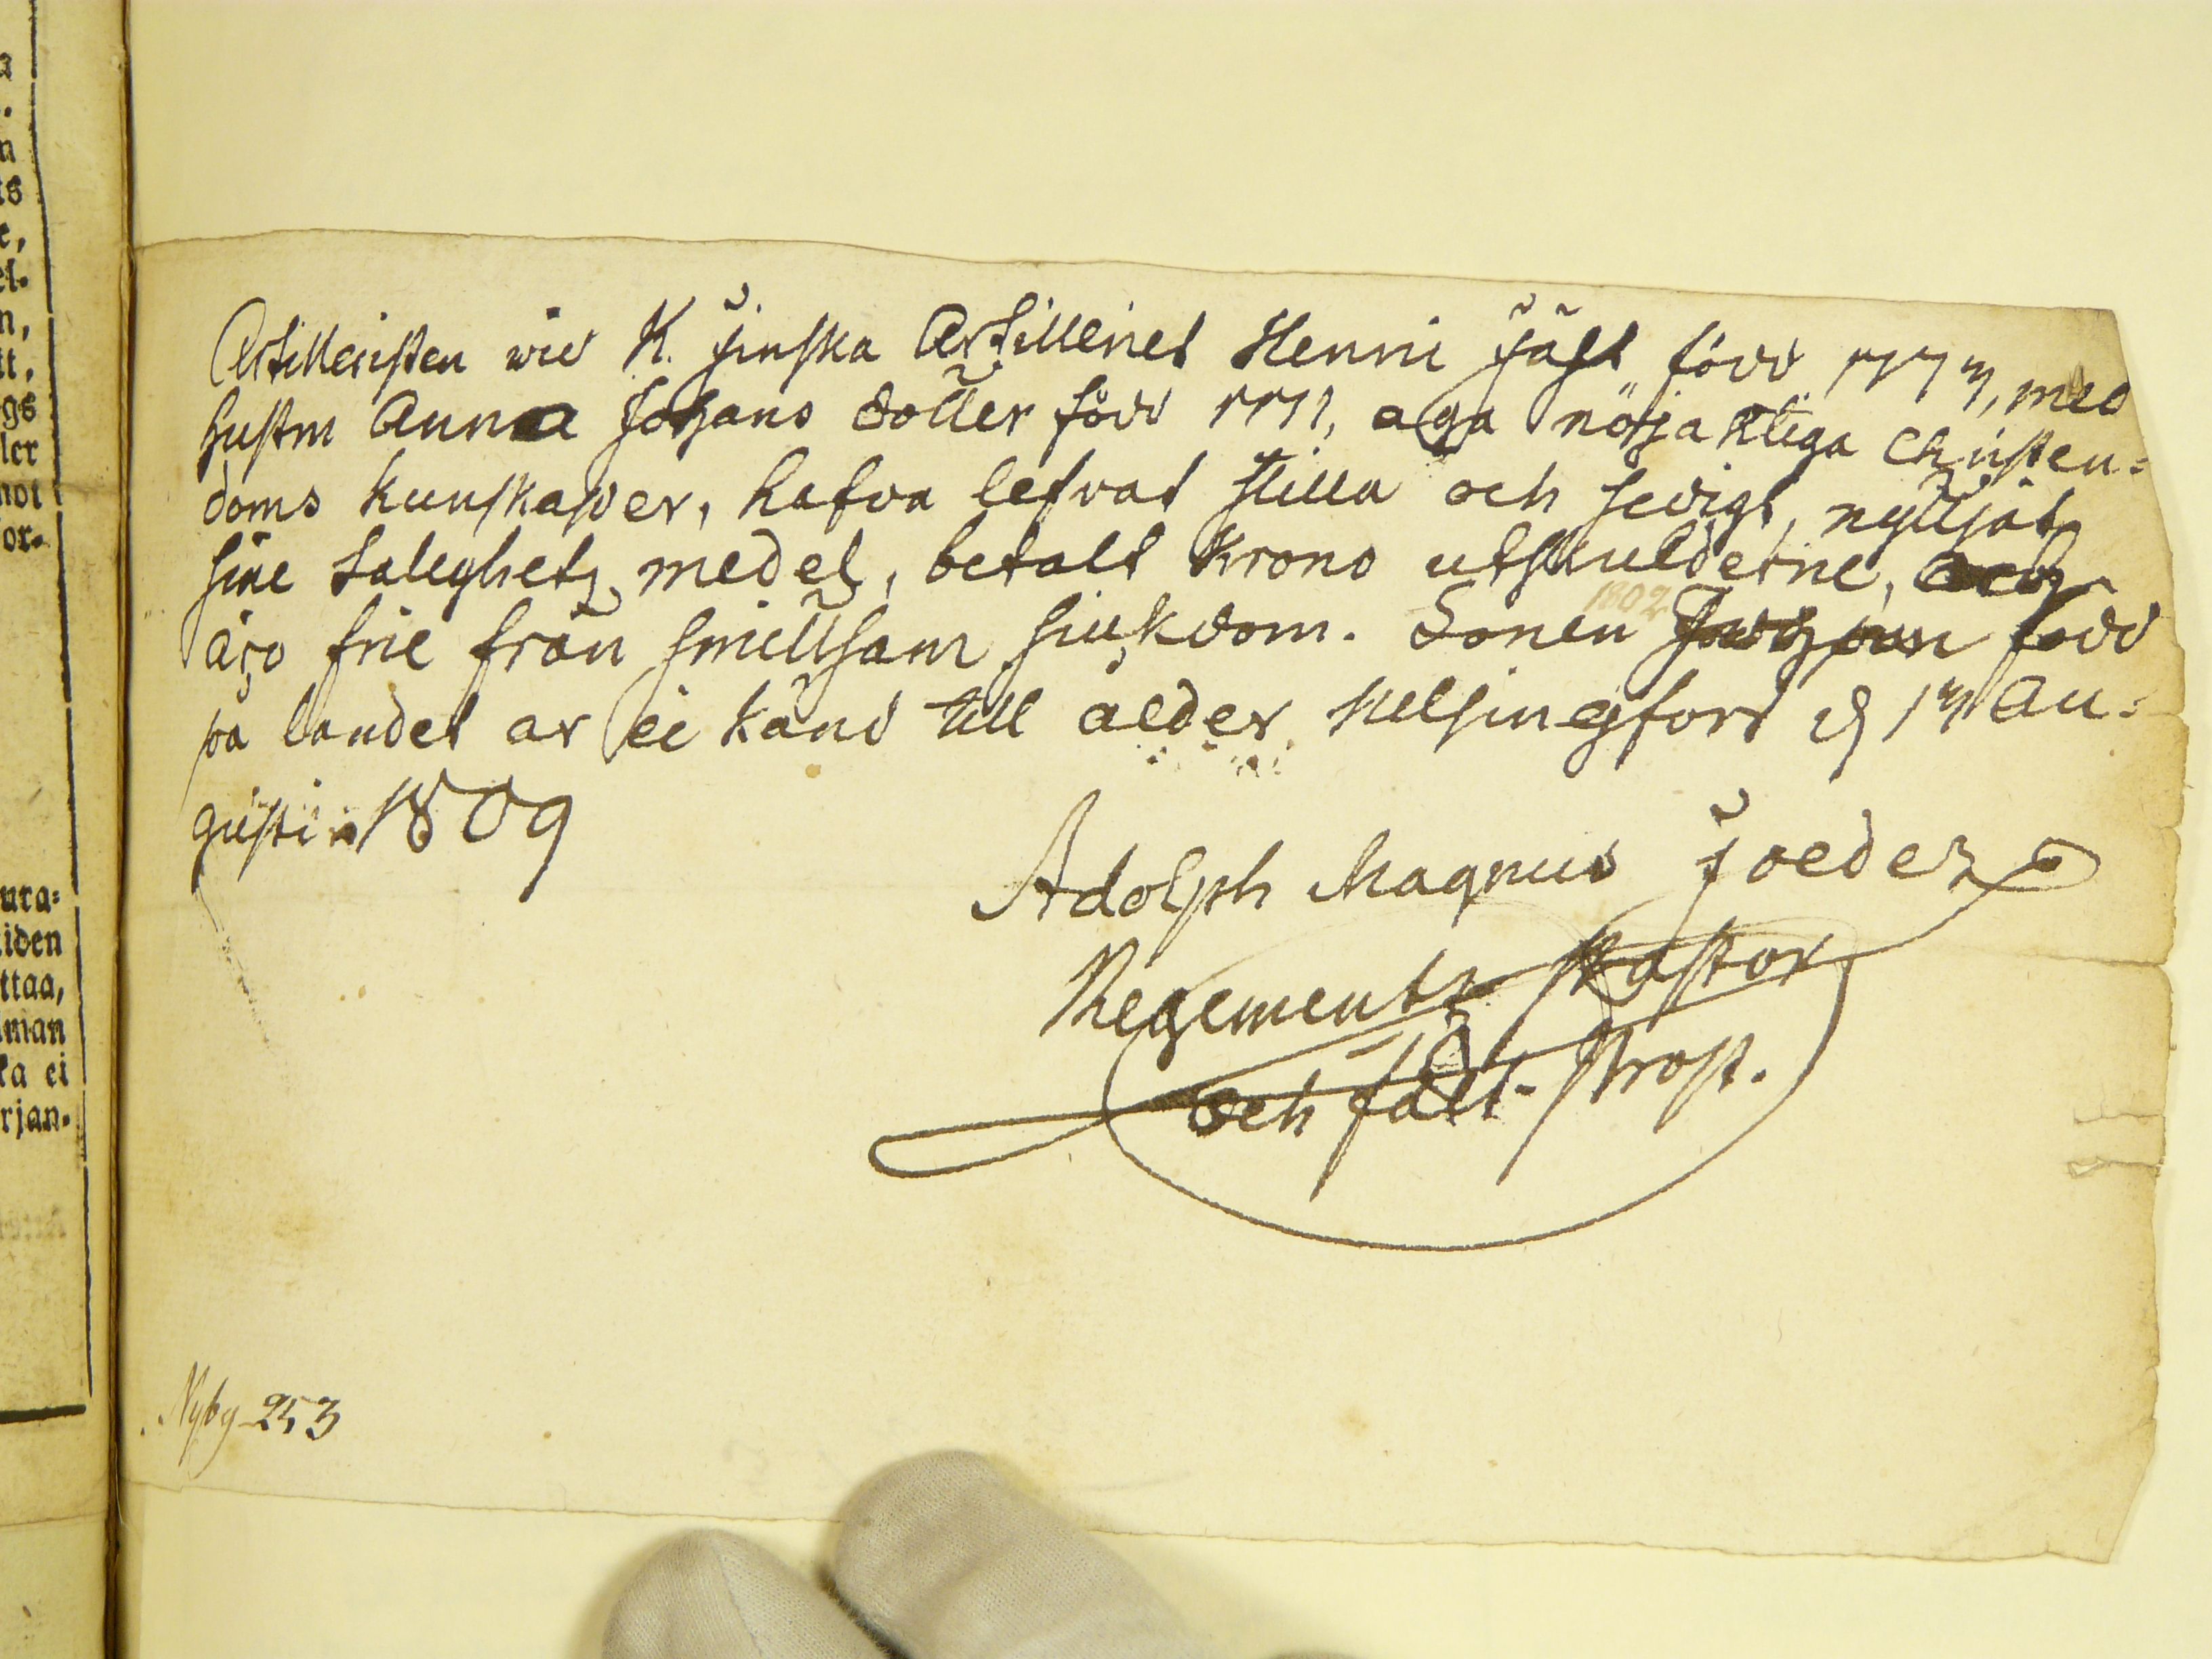 a
.
n
ts
e,
el-
n,
tt,
gs
ler
not
or-
Artilleristen wid K. Finska Artilleriet Henric Fäst född 1777, med
hustru Anna Johans dotter född 1771, äga nöjaktiga Christen-
doms kunskaper, hafva lefvat stilla och sedigt, nyttjat
sine Salighetz medel, betalt krono utskulderne, och
äro frie från smittsam siukdom. Sonen född
1802
på landet är ei känd till ålder. Helsingfors d 17 Au-
gusti 1809
Adolph Magnus
Regementz Pastor
och fält-Prost.
ura-
iden
ttaa,
man
ka ei
rjan-
Nyby 253